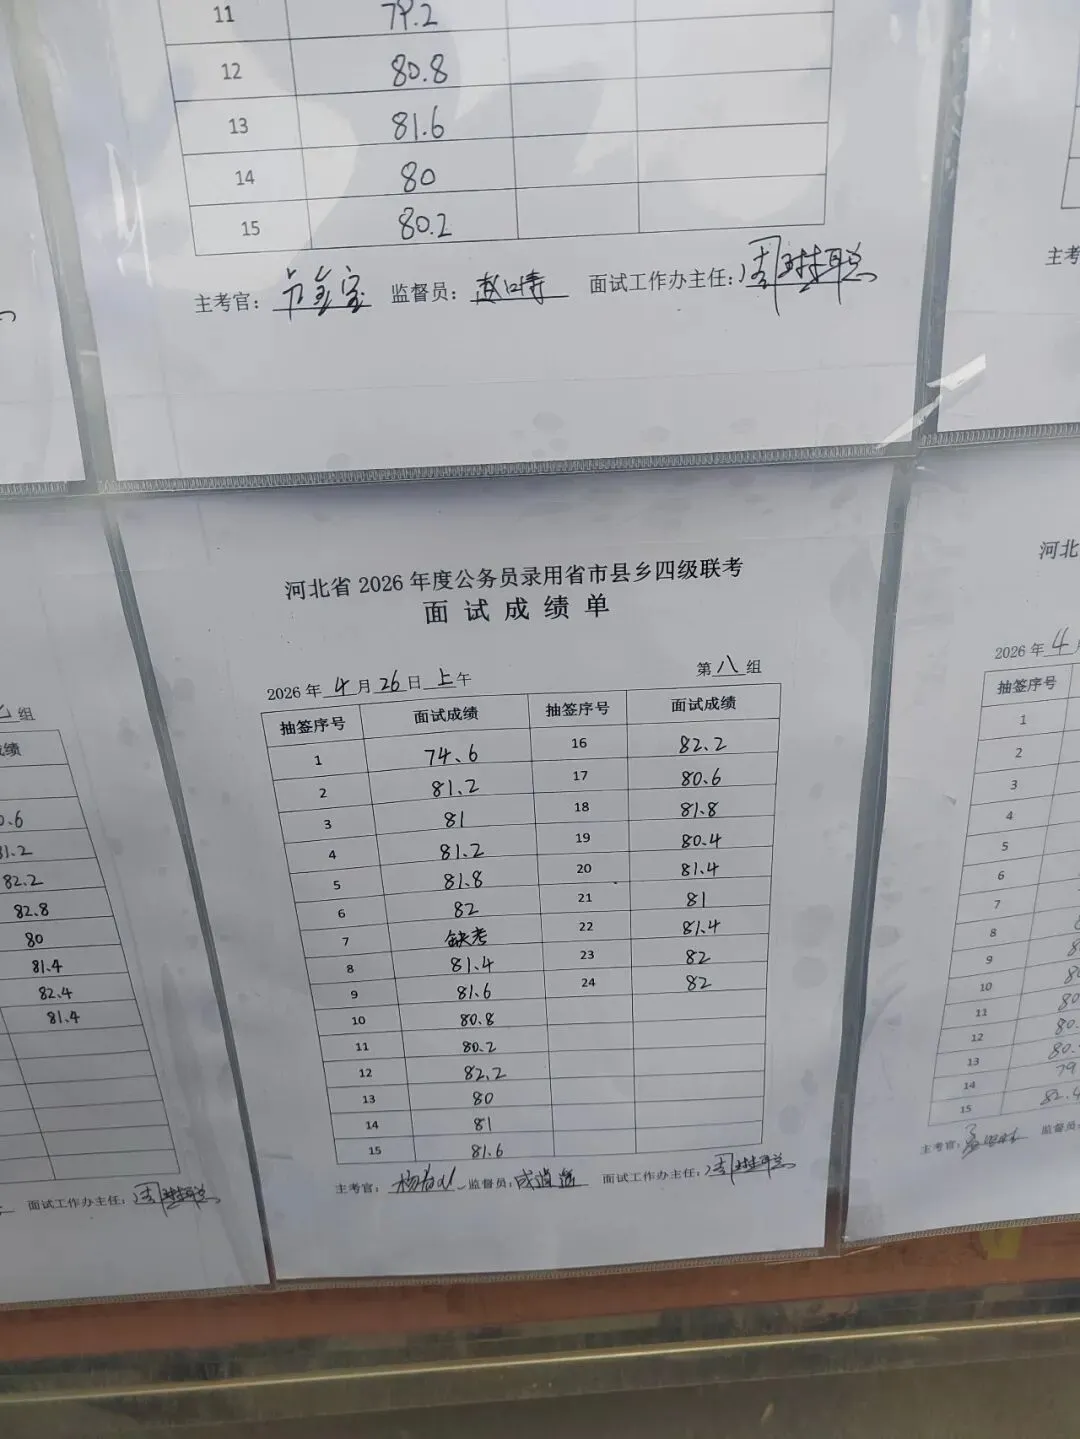 11 79.2
12 80.8
13 81.6
14 80
15 80.2
主考官： 监督员： 面试工作办主任：
主考
河北省 2026 年度公务员录用省市县乡四级联考
面 试 成 绩 单
2026 年 4 月 26 日 上 午 第 八 组
抽签序号 面试成绩 抽签序号 面试成绩
1 74.6 16 82.2
2 81.2 17 80.6
3 81 18 81.8
4 81.2 19 80.4
5 81.8 20 81.4
6 82 21 81
7 缺考 22 81.4
8 81.4 23 82
9 81.6 24 82
10 80.8
11 80.2
12 82.2
13 80
14 81
15 81.6
主考官： 监督员： 面试工作办主任：
组
绩
81.2
82.2
82.8
80
81.4
82.4
81.4
面试工作办主任：
河北
2026 年 4 月
抽签序号
1
2
3
4
5
6
7
8
9
10
11
12
13
14 79
15 82.4
主考官： 监督员：